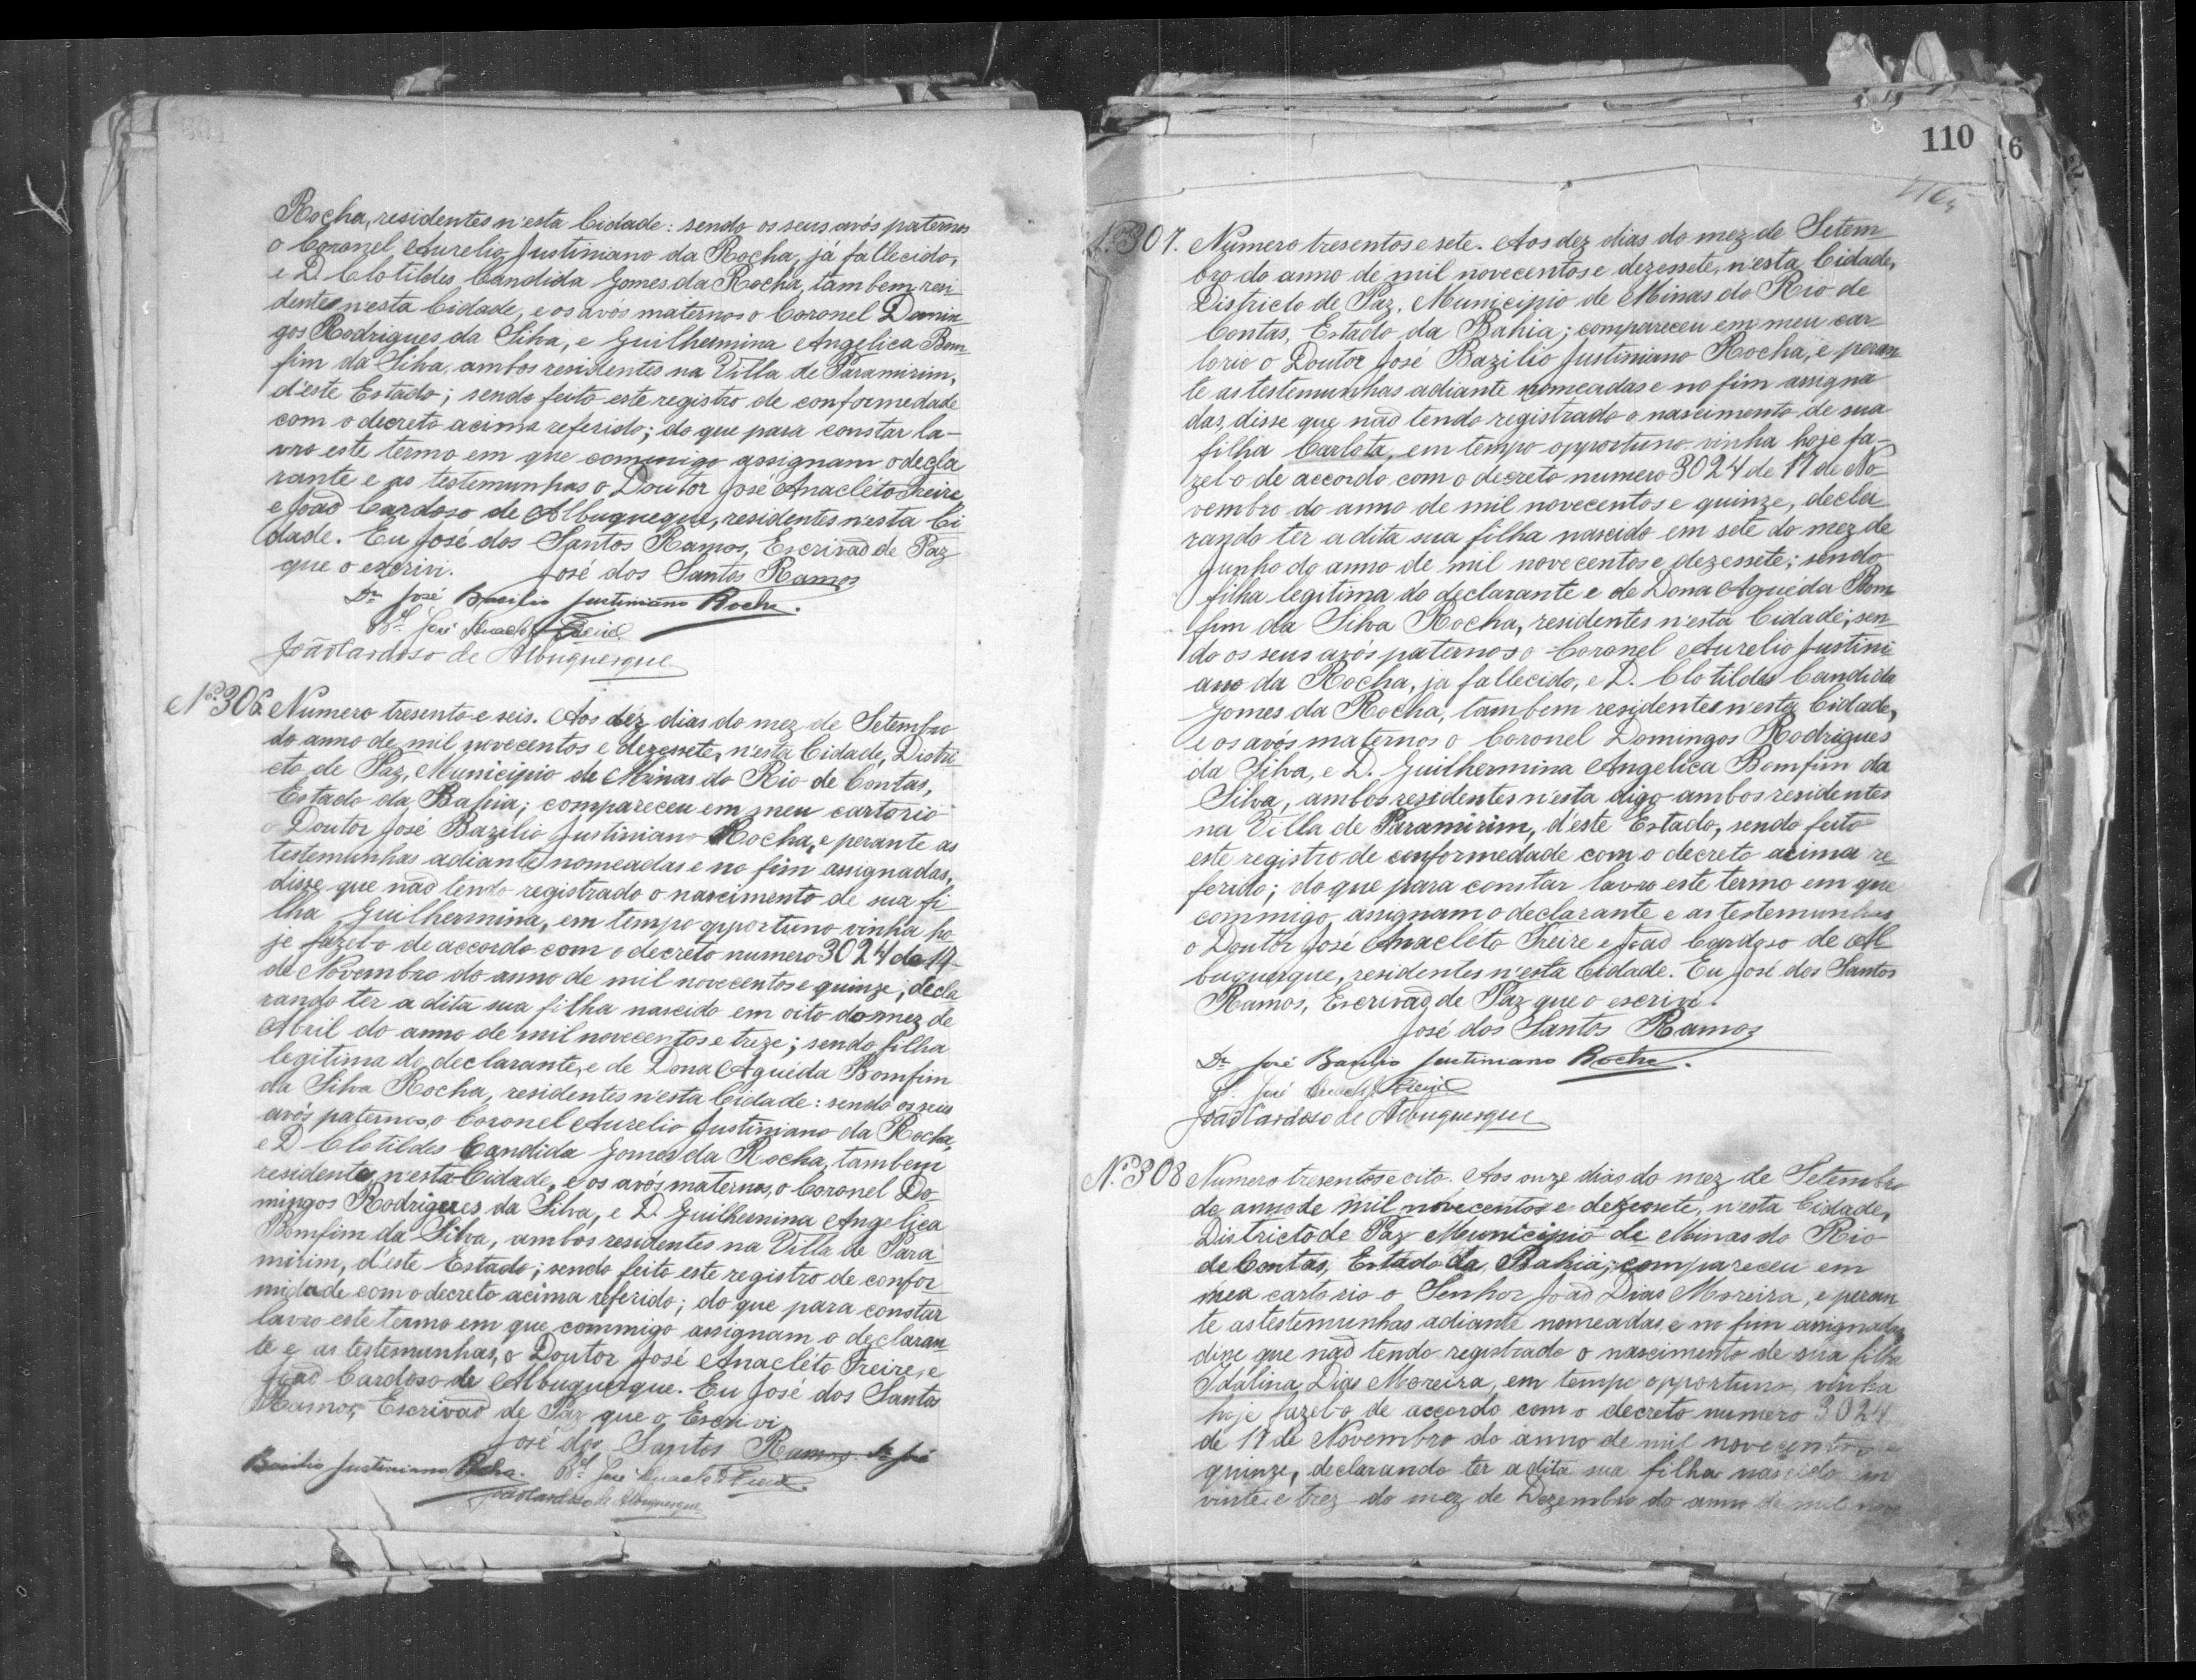 Rocha, residentes n'esta Cidade: sendo os seus avós paternos
o Coronel Aurelio Justiniano da Rocha, já fallecido,
e D. Clotildes Candida Gomes da Rocha, tambem resi-
dentes n'esta Cidade, e os avós maternos o Coronel Domin-
gos Rodrigues da Silva, e Guilhermina Angelica Bom-
fim da Silva, ambos residentes na Villa de Paramirim,
d'este Estado; sendo feito este registro de conformedade
com o decreto acima referido; do que para constar la-
vro este termo em que commigo assignam o decla
rante e as testemunhas o Doutor José Anacléto Freire
e João Cardoso de Albuquequi, residentes n'esta Ci
dade. Eu José dos Santos Ramos, Escrivão de Paz
que o escrivi. José dos Santos Ramos
Dr. José Basilio Justiniano Rocha.
Bel. José Anacleto Freire
João Cardoso de Albuquerque
Nº 306. Numero tresento e seis. Aos dez dias do mez de Setembro
do anno de mil novecentos e dezessete, n'esta Cidade, Distri
cto de Paz, Municipio de Minas do Rio de Contas,
Estado da Bahia; compareceu em meu cartorio
o Doutor José Bazilio Justiniano Rocha, e perante as
testemunhas adiante nomeadas e no fim assignadas,
disse que não tendo registrado o nascimento de sua fi
lha Guilhermina, em tempo opportuno vinha ho
je fazel-o de accordo com o decreto numero 3024 de 17
de Novembro do anno de mil novecentos e quinze; decla
rando ter a dita sua filha nascido em oito do mez de
Abril do anno de mil novecentos e treze; sendo filha
legitima do declarante, e de Dona Agueda Bomfim
da Silva Rocha, residentes n'esta Cidade: sendo os seus
avós paternos, o Coronel Aurelio Justiniano da Rocha,
e D Clotildes Candida Gomes da Rocha, tambem
residentes n'esta Cidade, e os avós maternos, o Coronel Do-
mingos Rodrigues da Silva, e D. Guilhermina Angelica
Bomfim da Silva, ambos residentes na Villa de Para-
mirim, d'este Estado; sendo feito este registro de confor
midade com o decreto acima referido; do que para constar
lavro este termo em que commigo assignam o declaran
te e as testemunhas, o Doutor José Anacléto Freire, e
João Cardoso de Albuquerque. Eu José dos Santos
Ramos, Escrivão de Paz que o Escrivi.
José dos Santos Ramos. Dr José
Basilio Justiniano Rocha. Bel. José Anacleto Freire.
João Cardoso de Albuquerque
110
6
Nº 307. Numero tresentos e sete. Aos dez dias do mez de Setem-
bro do anno de mil novecentos e dezessete, n'esta Cidade,
Districto de Paz, Municipio de Minas do Rio de
Contas, Estado da Bahia; compareceu em meu car-
torio o Doutor José Bazilio Justiniano Rocha, e peran-
te as testemunhas adiante nomeadas e no fim assigna
das, disse que não tendo registrado o nascimento de sua
filha Carlota, em tempo opportuno vinha hoje fa-
zel-o de accordo com o decreto numero 3024 de 17 de No-
vembro do anno de mil novecentos e quinze, decla
rando ter a dita sua filha nascido em sete do mez de
Junho do anno de mil novecentos e dezessete; sendo
filha legitima do declarante e de Dona Agueda Bom
fim da Silva Rocha, residentes n'esta Cidade; sen-
do os seus avós paternos o Coronel Aurelio Justini
ano da Rocha, ja fallecido, e D. Clotildes Candida
Gomes da Rocha, tambem residentes n'esta Cidade,
e os avós maternos o Coronel Domingos Rodrigues
da Silva, e D. Guilhermina Angelica Bomfim da
Silva, ambos residentes n'esta digo ambos residentes
na Villa de Paramirim, d'este Estado, sendo feito
este registro de conformedade com o decreto acima re-
ferido; do que para constar lavro este termo em que
commigo assignam o declarante e as testemunhas
o Doutor José Anacléto Freire e João Cardoso de Al-
buquerque, residentes n'esta Cidade. Eu José dos Santos
Ramos, Escrivão de Paz que o escrivi.
José dos Santos Ramos
Dr José Basilio Justiniano Rocha.
Bel. José Anacleto Freire
João Cardoso de Albuquerque
Nº 308 Numero tresentos e oito. Aos onze dias do mez de Setembro
do anno de mil novecentos e dezessete, n'esta Cidade,
Districto de Paz Municipio de Minas do Rio
de Contas, Estado da Bahia; compareceu em
meu cartorio o Senhor João Dias Moreira, e peran
te as testemunhas adiante nomeadas e no fim assignadas
disse que não tendo registrado o nascimento de sua filha
Idalina Dias Moreira, em tempo opportuno, vinha
hoje fazel-o de accordo com o decreto numero 3024
de 17 de Novembro do anno de mil novecentos e
quinze, declarando ter a dita sua filha nascido em
vinte e trez do mez de Dezembro do anno de mil nove